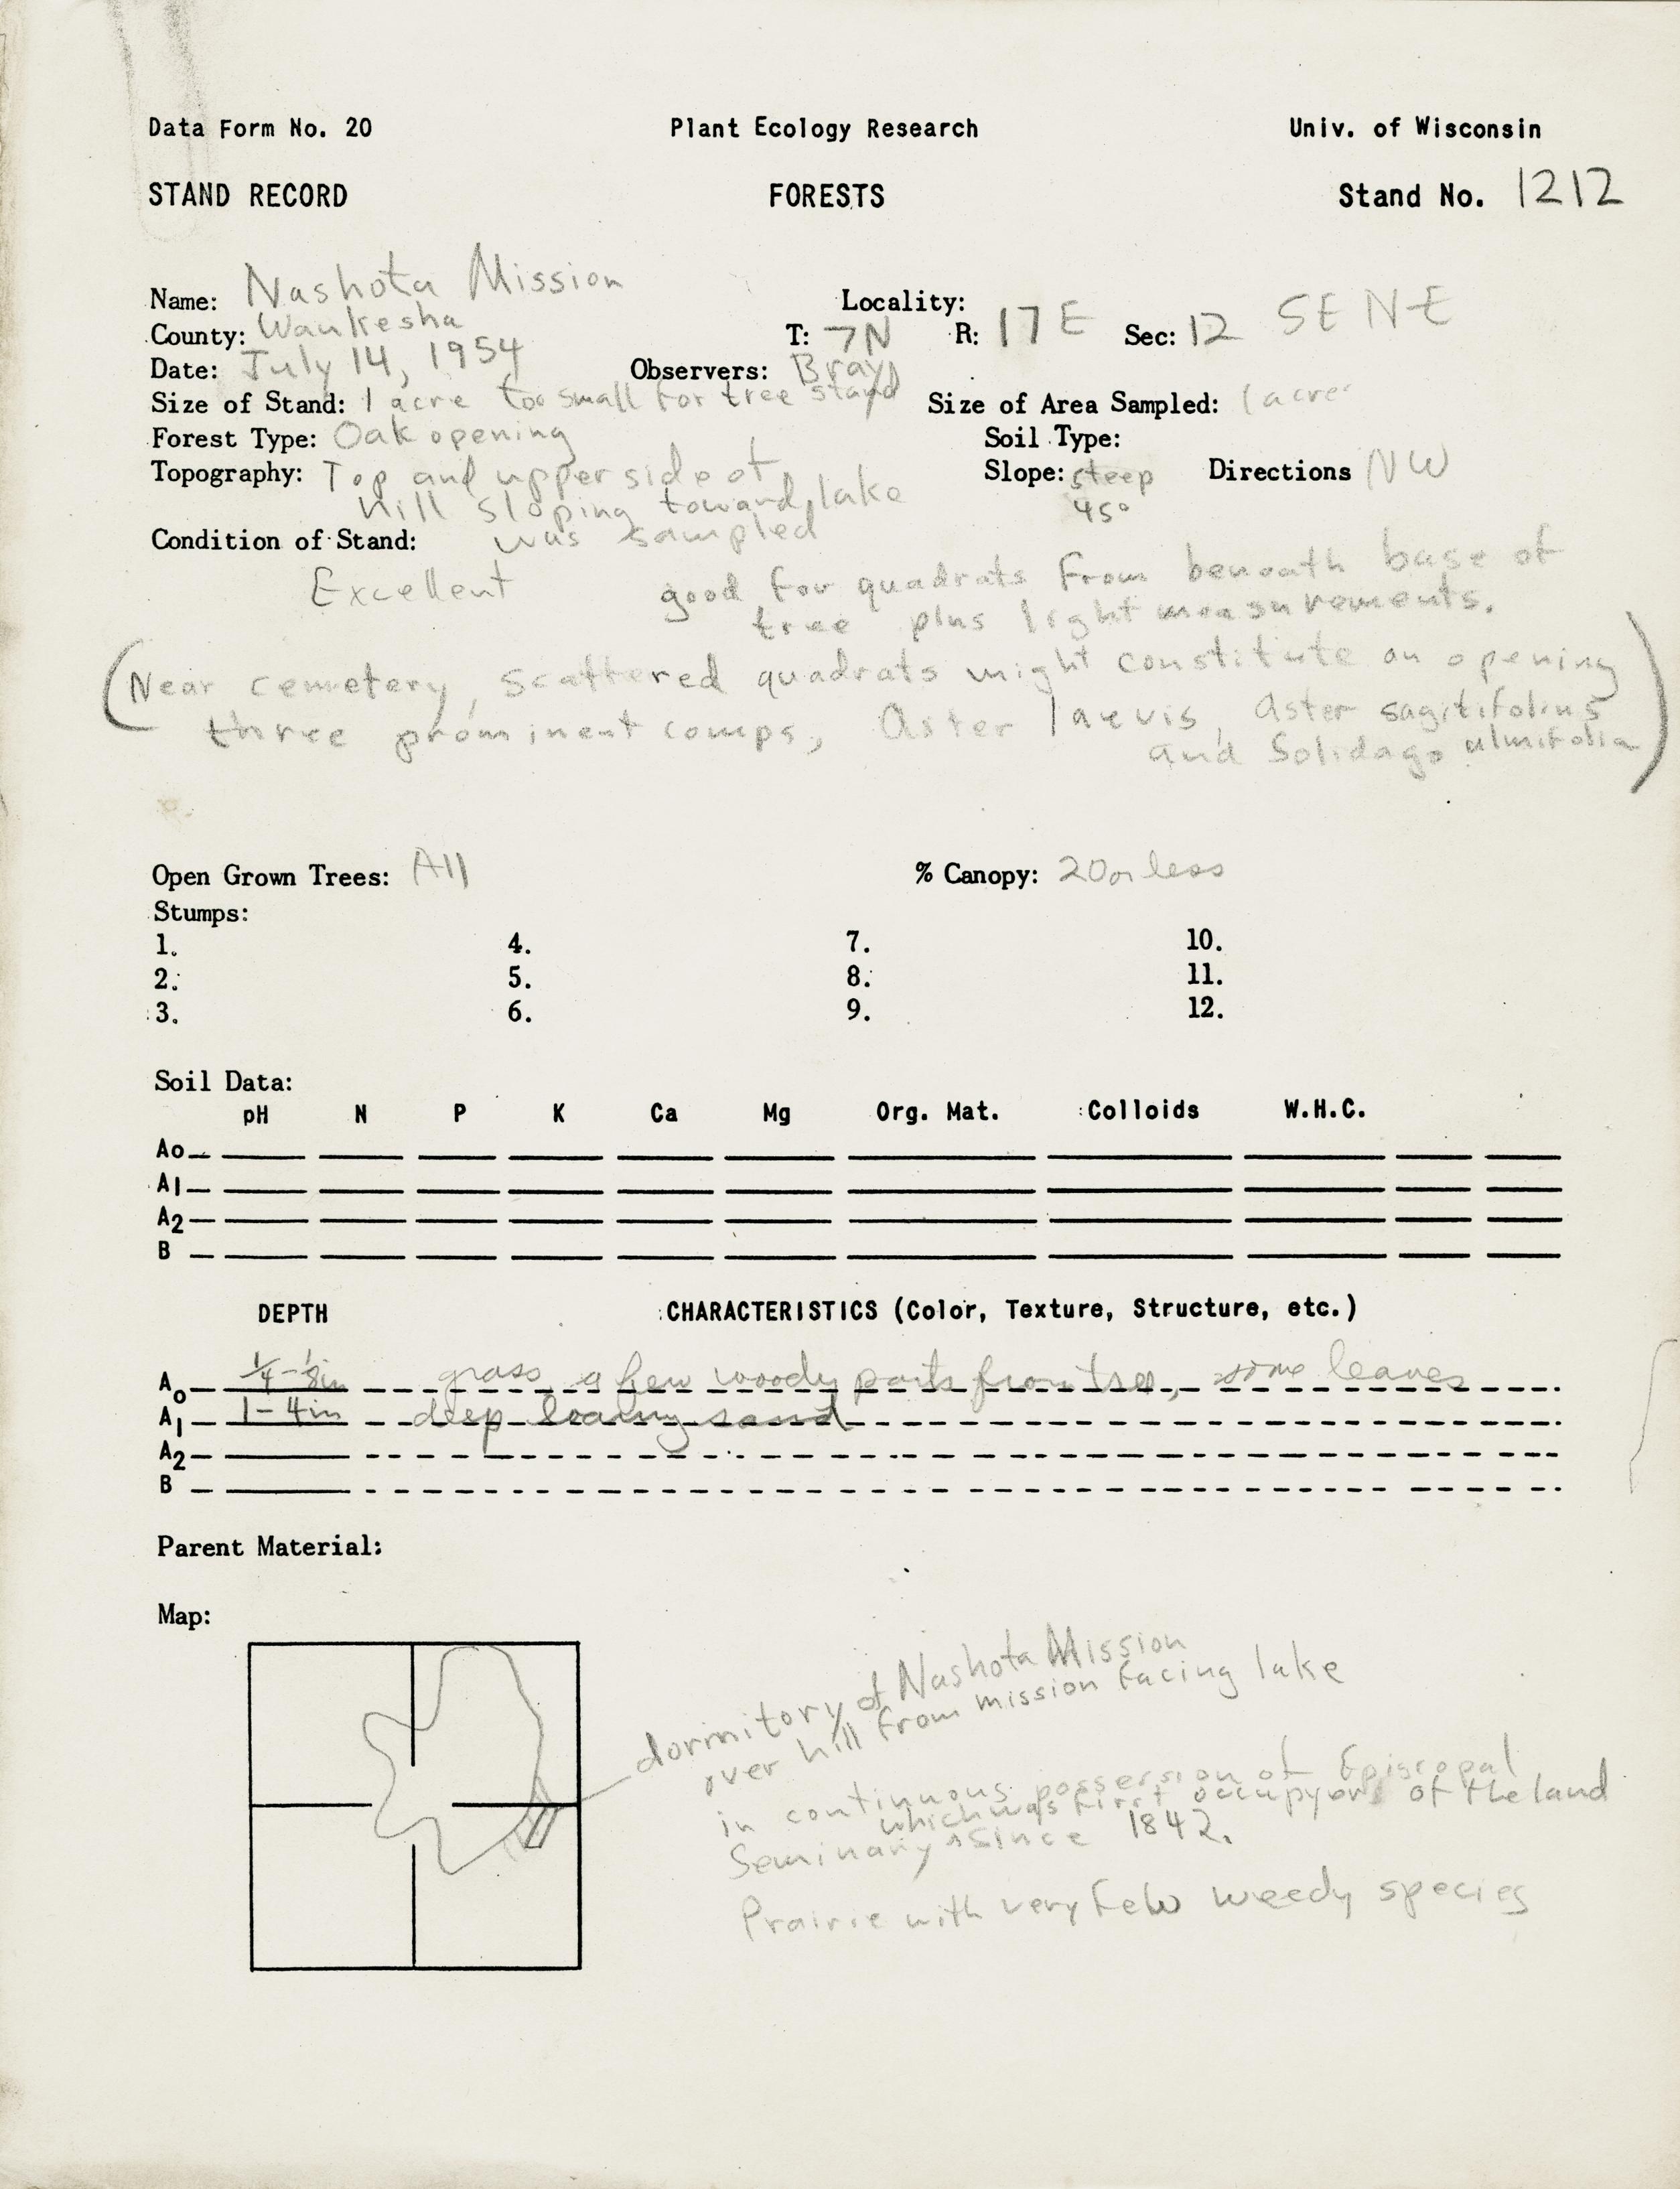 Data Form No. 20 Plant Ecology Research Univ. of Wisconsin
STAND RECORD FORESTS Stand No. 1212
Name: Nashota Mission Locality:
County: Waukesha T: 7N R: 17E Sec: 12 SE NE
Date: July 14, 1954 Observers: Bray
Size of Stand: 1 acre too small for tree stand Size of Area Sampled: 1 acre
Forest Type: Oak opening Soil Type:
Topography: Top and upper side of Slope: steep Directions NW
hill sloping toward lake 45°
Condition of Stand: was sampled
Excellent good for quadrats from beneath base of
tree plus light measurements.
(Near cemetery, scattered quadrats might constitute an opening
three prominent comps, Aster laevis, Aster sagitifolius
and Solidago ulmifolia)
Open Grown Trees: All % Canopy: 20 or less
Stumps:
1. 4. 7. 10.
2. 5. 8. 11.
3. 6. 9. 12.
Soil Data:
pH N P K Ca Mg Org. Mat. Colloids W.H.C.
Ao
A1
A2
B
DEPTH CHARACTERISTICS (Color, Texture, Structure, etc.)
Ao 1/4-1/8in grass, a few woody parts from tree, some leaves
A1 1-4in deep loamy sand
A2
B
Parent Material:
Map:
dormitory of Nashota Mission
over hill from mission facing lake
in continuous possession of Episcopal
which was first occupyers of the land
Seminary ^ since 1842.
Prairie with very few weedy species